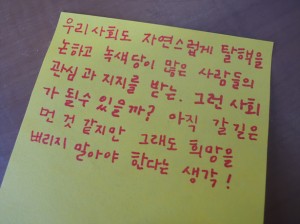 우리사회도 자연스럽게 탈핵을
논하고 녹색당이 많은 사람들의
관심과 지지를 받는. 그런 사회
가 될수 있을까? 아직 갈길은
먼 것 같지만 그래도 희망을
버리지 말아야 한다는 생각!